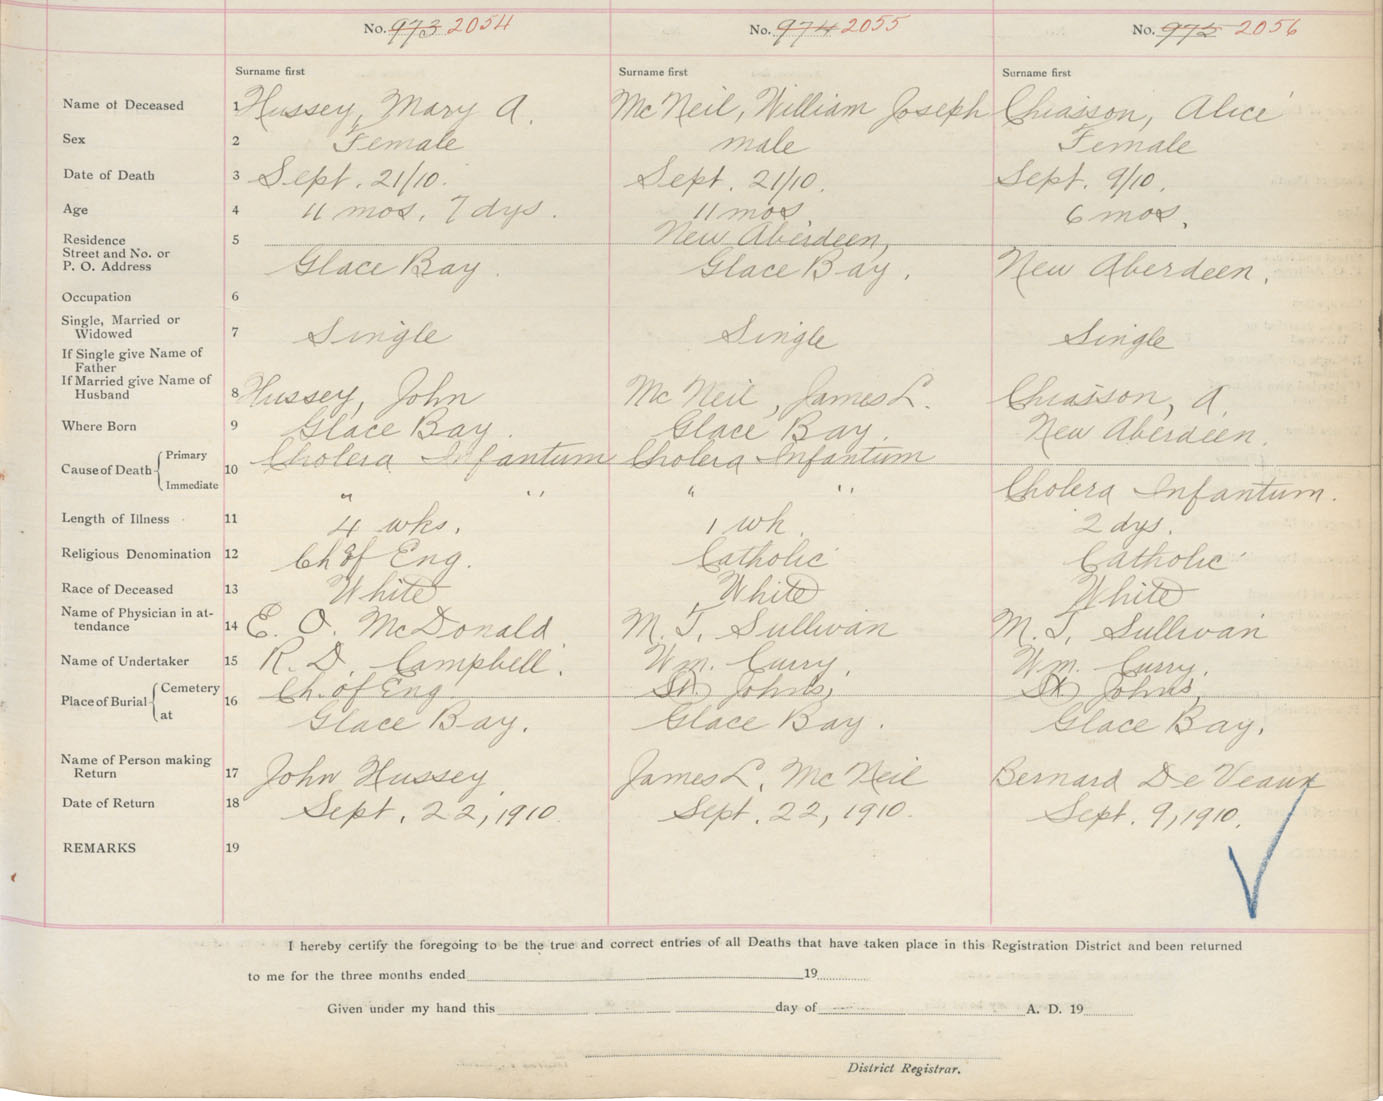 No. 973 2054 No. 974 2055 No. 975 2056
Surname first Surname first Surname first
Name of Deceased 1 Hussey, Mary A. McNeil, William Joseph Chiasson, Alice
Sex 2 Female male Female
Date of Death 3 Sept. 21/10. Sept. 21/10. Sept. 9/10.
Age 4 11 mos. 7 dys. 11 mos. 6 mos.
Residence 5 New Aberdeen,
Street and No. or
P. O. Address Glace Bay. Glace Bay. New Aberdeen.
Occupation 6
Single, Married or
Widowed 7 Single Single Single
If Single give Name of
Father
If Married give Name of
Husband 8 Hussey, John McNeil, James L. Chiasson, A.
Where Born 9 Glace Bay. Glace Bay. New Aberdeen.
Cause of Death Primary 10 Cholera Infantum Cholera Infantum
Immediate " " " " Cholera Infantum.
Length of Illness 11 4 wks. 1 wk. 2 dys.
Religious Denomination 12 Ch of Eng. Catholic Catholic
Race of Deceased 13 White White White
Name of Physician in at-
tendance 14 E. O. McDonald M. T. Sullivan M. T. Sullivan
Name of Undertaker 15 R. D. Campbell. Wm. Curry. Wm. Curry.
Place of Burial Cemetery 16 Ch. of Eng. St. Johns, St. Johns,
at Glace Bay. Glace Bay. Glace Bay.
Name of Person making
Return 17 John Hussey James L. McNeil Bernard De Veaux
Date of Return 18 Sept. 22, 1910 Sept. 22, 1910. Sept. 9, 1910.
REMARKS 19
I hereby certify the foregoing to be the true and correct entries of all Deaths that have taken place in this Registration District and been returned
to me for the three months ended 19
Given under my hand this day of A. D. 19
District Registrar.